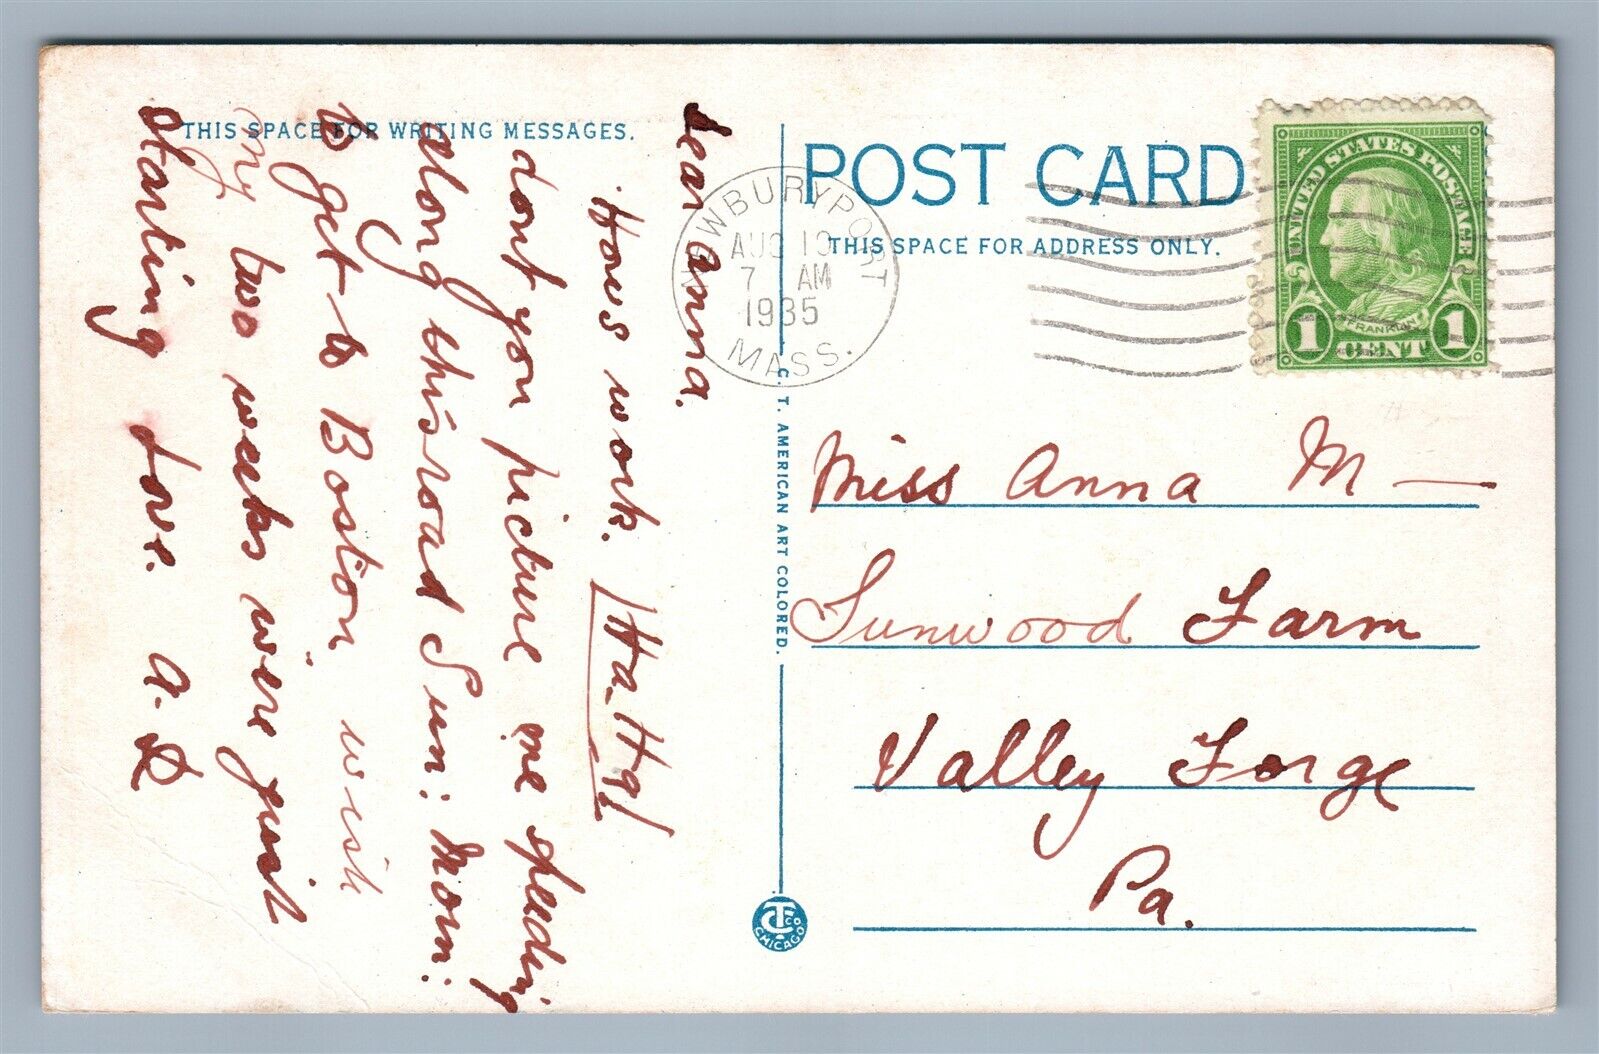 THIS SPACE FOR WRITING MESSAGES.
Dear Anna.
Hows work. Ha Ha
dont you picture me speeding
along this road Sun: Morn:
to get to Boston, wish
my two weeks were just
starting Love. A. R
NEWBURYPORT
AUG 19
7 AM
1935
MASS.
C. T. AMERICAN ART COLORED.
CT CO
CHICAGO
POST CARD
THIS SPACE FOR ADDRESS ONLY.
UNITED STATES POSTAGE
FRANKLIN
1 CENT 1
Miss Anna M —
Sunwood Farm
Valley Forge
Pa.